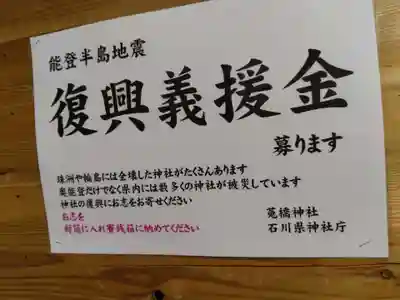 能登半島地震
復興義援金
募ります
珠洲や輪島には全壊した神社がたくさんあります
奥能登だけでなく県内には数多くの神社が被災しています
神社の復興にお志をお寄せください
お志を
封筒に入れ賽銭箱に納めてください
菟橋神社
石川県神社庁